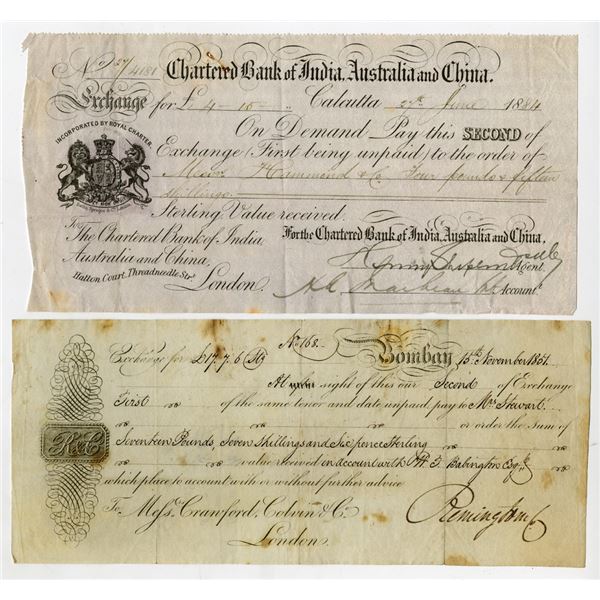 No 27/4181 Chartered Bank of India, Australia and China.
Exchange for £ 4-15- " Calcutta 27th June 1884
On Demand Pay this SECOND of
INCORPORATED BY ROYAL CHARTER.
Exchange (First being unpaid) to the order of
Messrs Hammond & Co. Four pounds & fifteen
shillings
Sterling Value received.
To
The Chartered Bank of India,
Australia and China,
Hatton Court, Threadneedle Str.
London.
For the Chartered Bank of India, Australia and China,
Agent.
Account.t
No. 168.
Exchange for £17.7.6 Stg Bombay 15th November 1851.
At sight of this our Second of Exchange
First of the same tenor and date unpaid, pay to Mrs Stewart
or order the Sum of
Seventeen Pounds, Seven Shillings and Six pence Sterling
R&Co
value received on account with H. F. Babington Esqre
which place to account with or without further advice
To Messrs Crawford, Colvin & Co.
London.
Remington & Co